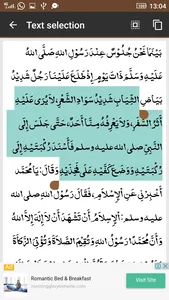 13:04
Text selection
بَيْنَمَا نَحْنُ جُلُوْسٌ عِنْدَ رَسُوْلِ اللهِ صَلَّى اللهُ
عَلَيْهِ وَسَلَّمَ ذَاتَ يَوْمٍ إِذْ طَلَعَ عَلَيْنَا رَجُلٌ شَدِيْدُ
بَيَاضِ الثِّيَابِ شَدِيْدُ سَوَادِ الشَّعْرِ، لاَ يُرَى عَلَيْهِ
أَثَرُ السَّفَرِ، وَلاَ يَعْرِفُهُ مِنَّا أَحَدٌ، حَتَّى جَلَسَ إِلَى
النَّبِيِّ صلى الله عليه وسلم فَأَسْنَدَ رُكْبَتَيْهِ إِلَى
رُكْبَتَيْهِ وَوَضَعَ كَفَّيْهِ عَلَى فَخِذَيْهِ وَقَالَ: يَا مُحَمَّد
أَخْبِرْنِي عَنِ اْلإِسْلاَمِ، فَقَالَ رَسُوْلُ اللهِ صلى الله
عليه وسلم : اْلإِسْلاَمُ أَنْ تَشْهَدَ أَنْ لاَ إِلَهَ إِلاَّ اللهُ
وَأَنَّ مُحَمَّدًا رَسُوْلُ اللهِ وَتُقِيْمَ الصَّلاَةَ وَتُؤْتِيَ الزَّكاَةَ
AD
Romantic Bed & Breakfast
Visit Site